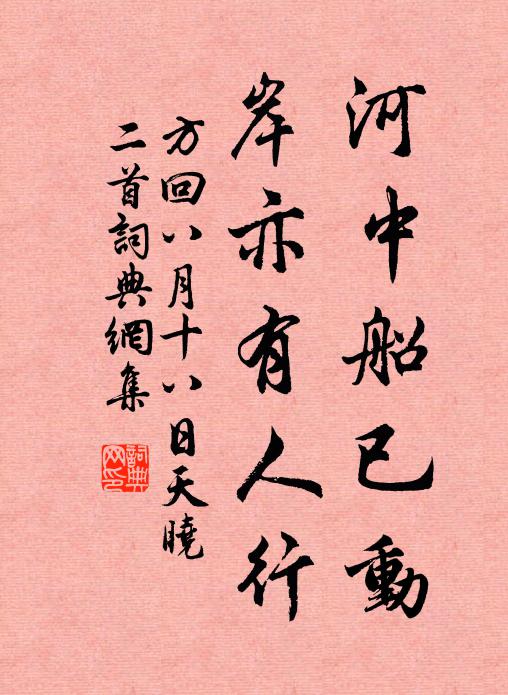 河中船已動
岸亦有人行
方回八月十八日天曉
二首詞典網集
詞典
网印